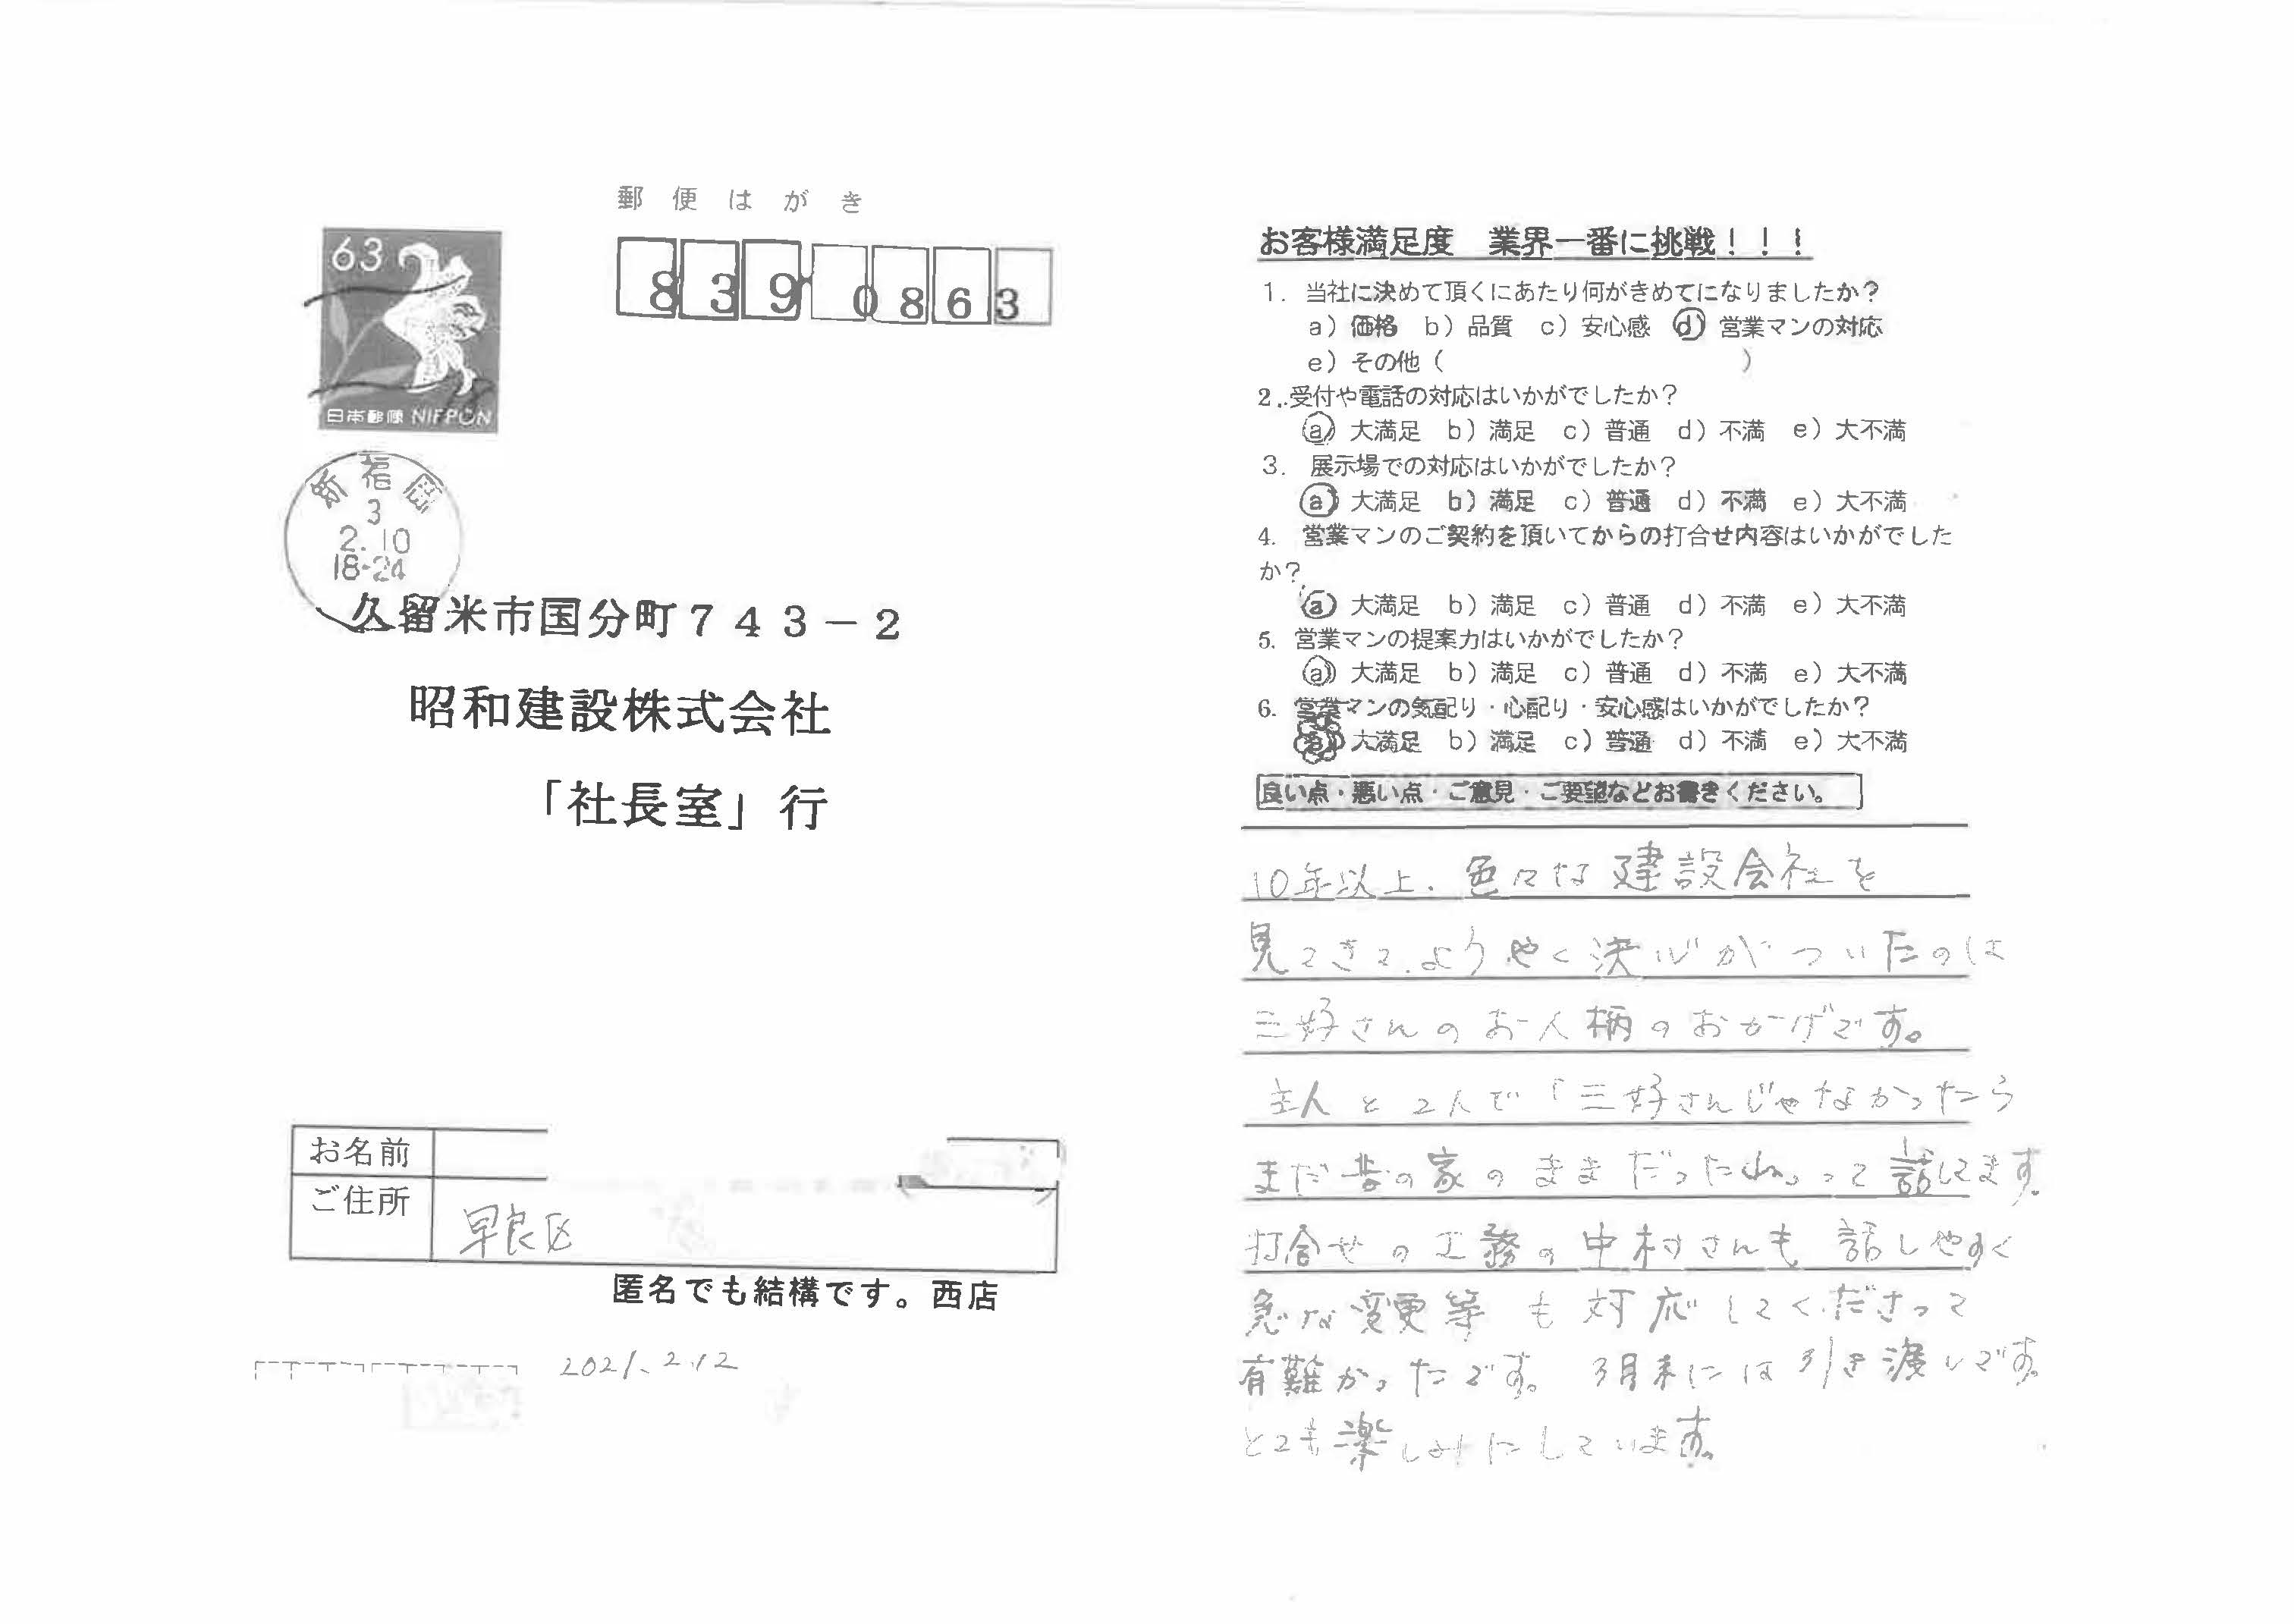 郵便はがき
63
日本郵便 NIPPON
8 3 9 0 8 6 3
新福岡
3
2.10
18-24
久留米市国分町743-2
昭和建設株式会社
「社長室」行
お名前
ご住所 早良区
匿名でも結構です。西店
2021.2.12
お客様満足度 業界一番に挑戦!!!
1. 当社に決めて頂くにあたり何がきめてになりましたか?
a)価格 b)品質 c)安心感 d)営業マンの対応
e)その他( )
2..受付や電話の対応はいかがでしたか?
a)大満足 b)満足 c)普通 d)不満 e)大不満
3. 展示場での対応はいかがでしたか?
a)大満足 b)満足 c)普通 d)不満 e)大不満
4. 営業マンのご契約を頂いてからの打合せ内容はいかがでした
か?
a)大満足 b)満足 c)普通 d)不満 e)大不満
5. 営業マンの提案力はいかがでしたか?
a)大満足 b)満足 c)普通 d)不満 e)大不満
6. 営業マンの気配り・心配り・安心感はいかがでしたか?
a)大満足 b)満足 c)普通 d)不満 e)大不満
良い点・悪い点・ご意見・ご要望などお書きください。
10年以上、色々な建設会社を
見てきて、ようやく決心がついたのは
三好さんのお人柄のおかげです。
主人と2人で「三好さんじゃなかったら
まだ昔の家のままだったね。って話してます。
打合せの工務の中村さんも話しやすく
急な変更等も対応してくださって
有難かったです。3月末には引き渡しです。
とても楽しみにしています。